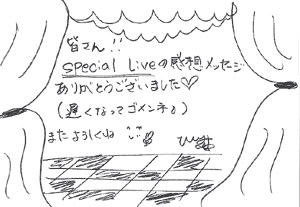 皆さん!!
special Liveの感想メッセージ
ありがとうございました♡
(遅くなってゴメンネ♪)
またよろしくね